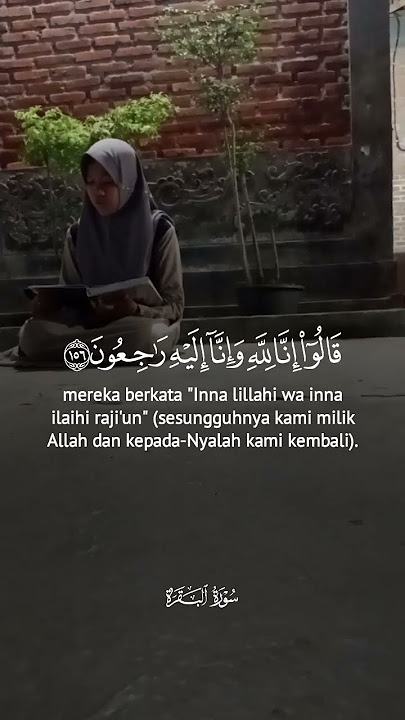 قَالُوٓا۟ إِنَّا لِلَّهِ وَإِنَّآ إِلَيْهِ رَٰجِعُونَ ١٥٦
mereka berkata "Inna lillahi wa inna
ilaihi raji'un" (sesungguhnya kami milik
Allah dan kepada-Nyalah kami kembali).
سُورَةُ ٱلْبَقَرَةِ